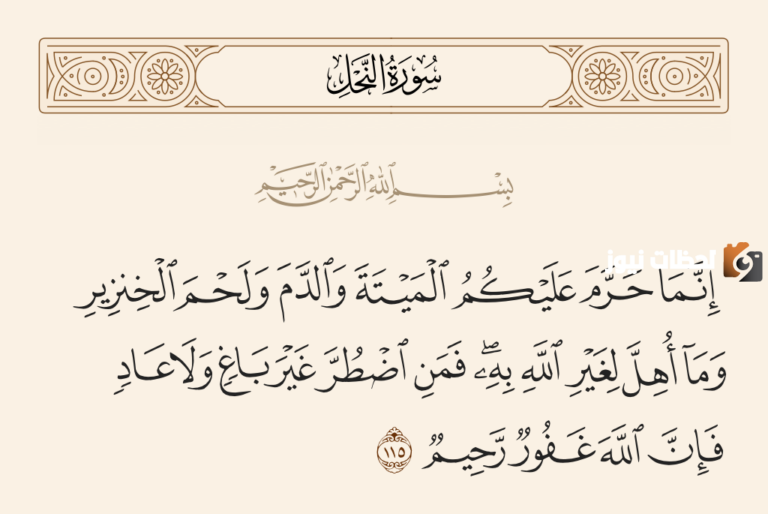 سُورَةُ النَّحْلِ
بِسْمِ ٱللَّهِ ٱلرَّحْمَٰنِ ٱلرَّحِيمِ
لحظات نيوز
إِنَّمَا حَرَّمَ عَلَيْكُمُ ٱلْمَيْتَةَ وَٱلدَّمَ وَلَحْمَ ٱلْخِنزِيرِ
وَمَآ أُهِلَّ لِغَيْرِ ٱللَّهِ بِهِۦۖ فَمَنِ ٱضْطُرَّ غَيْرَ بَاغٍ وَلَا عَادٍ
فَإِنَّ ٱللَّهَ غَفُورٌ رَّحِيمٌ ١١٥